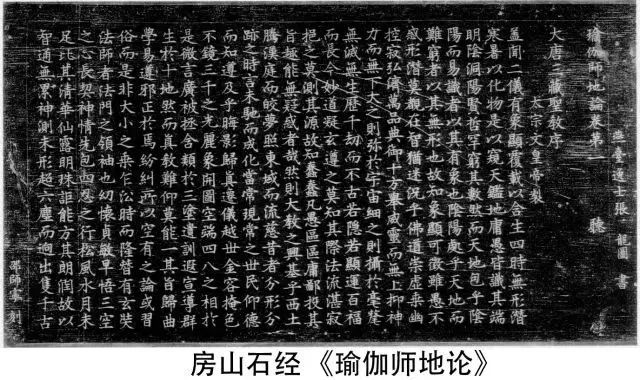 燕臺逸士張龍圖書
瑜伽師地論卷第一 聽
大唐三藏聖教序
太宗文皇帝製
蓋聞二儀有象顯覆載以含生四時無形潛
寒暑以化物是以窺天鑑地庸愚皆識其端
明陰洞陽賢哲罕窮其數然而天地包乎陰
陽而易識者以其有象也陰陽處乎天地而
難窮者以其無形也故知象顯可徵雖愚不
惑形潛莫覩在智猶迷況乎佛道崇虛乘幽
控寂弘濟萬品典御十方舉威靈而無上抑神
力而無下大之則彌於宇宙細之則攝於毫釐
無滅無生歷千劫而不古若隱若顯運百福
而長今妙道凝玄遵之莫知其際法流湛寂
挹之莫測其源故知蠢蠢凡愚區區庸鄙投其
旨趣能無疑惑者哉然則大教之興基乎西土
騰漢庭而皎夢照東域而流慈昔者分形分
跡之時言未馳而成化當常現常之世民仰德
而知遵及乎晦影歸真遷儀越世金容掩色
不鏡三千之光麗象開圖空端四八之相於
是微言廣被拯含類於三塗遺訓遐宣導群
生於十地然而真教難仰莫能一其旨歸曲
學易遵邪正於焉紛糾所以空有之論或習
俗而是非大小之乘乍沿時而隆替有玄奘
法師者法門之領袖也幼懷貞敏早悟三空
之心長契神情先包四忍之行松風水月未
足比其清華仙露明珠詎能方其朗潤故以
智通無累神測未形超六塵而迥出隻千古
邵師摹刻
房山石经《瑜伽师地论》